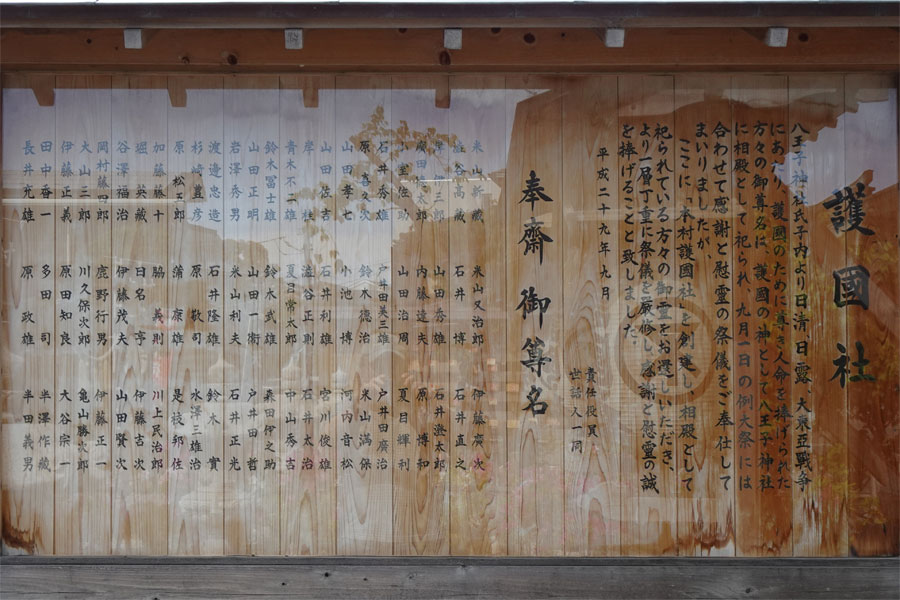 護國社
八王子神社氏子内より日清 日露 大東亞戰争
にあたり、護國のために尊き人命を捧げられた
方々の御尊名に、護國の神として八王子神社
に相殿として祀られ、九月一日の例大祭には
合わせて感謝と慰霊の祭儀をご奉仕して
まいりましたが、
ここに「本村護國社」と創建し、相殿として
祀られている方々の御霊をお遷しいただき、
より一層丁重に祭儀を厳修し感謝と慰霊の誠
を捧げることと致しました。
平成二十九年九月
責任役員
世話人一同
奉斎御尊名
米山新藏 米山又治郎 伊藤廣次
澁谷高藏 石井博 石井直之
山田秀雄 石井遊太郎
内藤達夫 原博和
小室佐助 山田治周 夏目輝利
石井秀雄 戸井田美三雄 戸井田廣治
原喜久次 鈴木德治 米山満保
山田孝七 小池博 河内音松
山田佐吉 石井利雄 宮川俊雄
岸桂 澁谷正則 石井太治
青木不二雄 夏目常太郎 中山秀吉
鈴木冨士雄 鈴木武雄 森田伊之助
山田正明 山田一衛 戸井田哲
岩澤秀男 米山利夫 石井正光
渡邊忠造 石井隆雄 鈴木實
杉崎豊彦 原敬司 水澤三雄治
原松五郎 蒲康雄 是枝邦佐
加藤藤十 脇義則 川上民治郎
堀英藏 日名亭 伊藤吉次
谷澤福治 伊藤茂夫 山田賢次
岡村藤四郎 鹿野行男 伊藤正一
大山三郎 川久保次郎 亀山勝次郎
伊藤正義 原田知良 大谷宗一
田中香一 多田司 半澤作藏
長井光雄 原政雄 半田義男